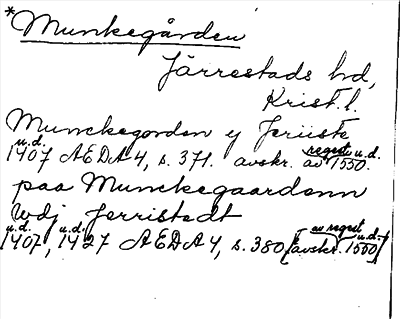 *Munkegården
Järrestads hd,
Krist. l.
Munckegorden y Jeriiste
u.d. 1407 ÆDA 4, s. 371. avskr. av regest u.d. 1550.
paa Munckegaardenn
wdj Jerristedt
u.d. 1407, u.d. 1427 ÆDA 4, s. 380 [avskr. av regest u.d. 1550]